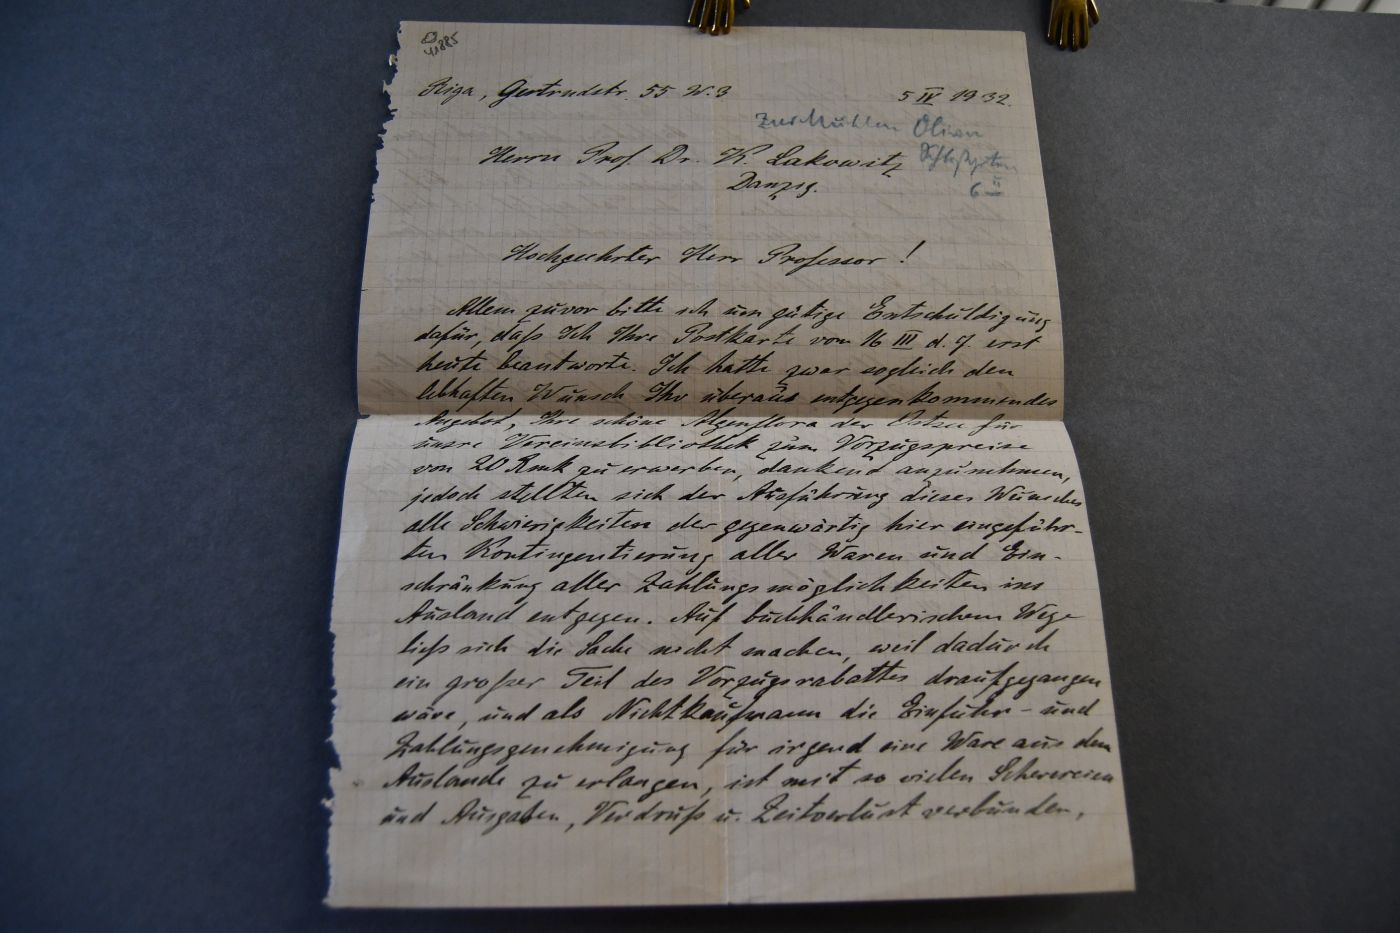 41885
Riga, Gertrudstr. 55 W. 3
5 IV 1932.
Zur Mühlen Oliva
6 II
Herrn Prof. Dr. K. Lakowitz
Danzig.
Hochgeehrter Herr Professor!
Allem zuvor bitte ich um gütige Entschuldigung
dafür, daß Ich Ihre Postkarte vom 16 III d. J. erst
heute beantworte. Ich hatte zwar sogleich den
lebhaften Wunsch Ihr überaus entgegenkommendes
Angebot, Ihre schöne Algenflora der Ostsee für
unsre Vereinsbibliothek zum Vorzugspreise
von 20 Rmk zu erwerben, dankend anzunehmen,
jedoch stellten sich der Ausführung dieses Wunsches
alle Schwierigkeiten der gegenwärtig hier eingeführ-
ten Kontingentierung aller Waren und Ein-
schränkung aller Zahlungsmöglichkeiten ins
Ausland entgegen. Auf buchhändlerischem Wege
ließ sich die Sache nicht machen, weil dadurch
ein großer Teil des Vorzugsrabattes draufgegangen
wäre, und als Nichtkaufmann die Einfuhr- und
Zahlungsgenehmigung für irgend eine Ware aus dem
Auslande zu erlangen, ist mit so vielen Scherereien
und Ausgaben, Verdruß u. Zeitverlust verbunden,